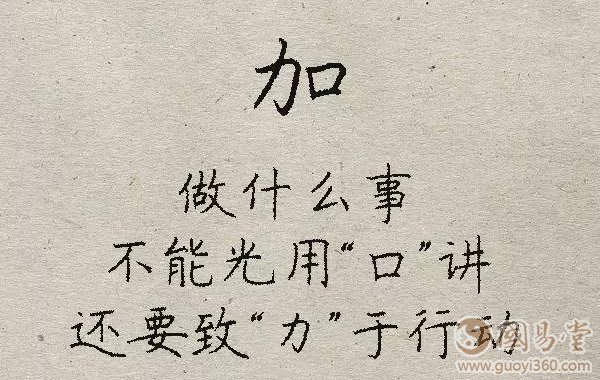 加
做什么事
不能光用“口”讲
还要致“力”于行动
国易堂
www.guoyi360.com